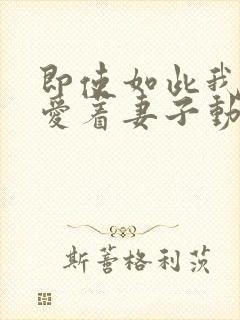 即使如此我
爱着妻子動
斯蒿格利茨